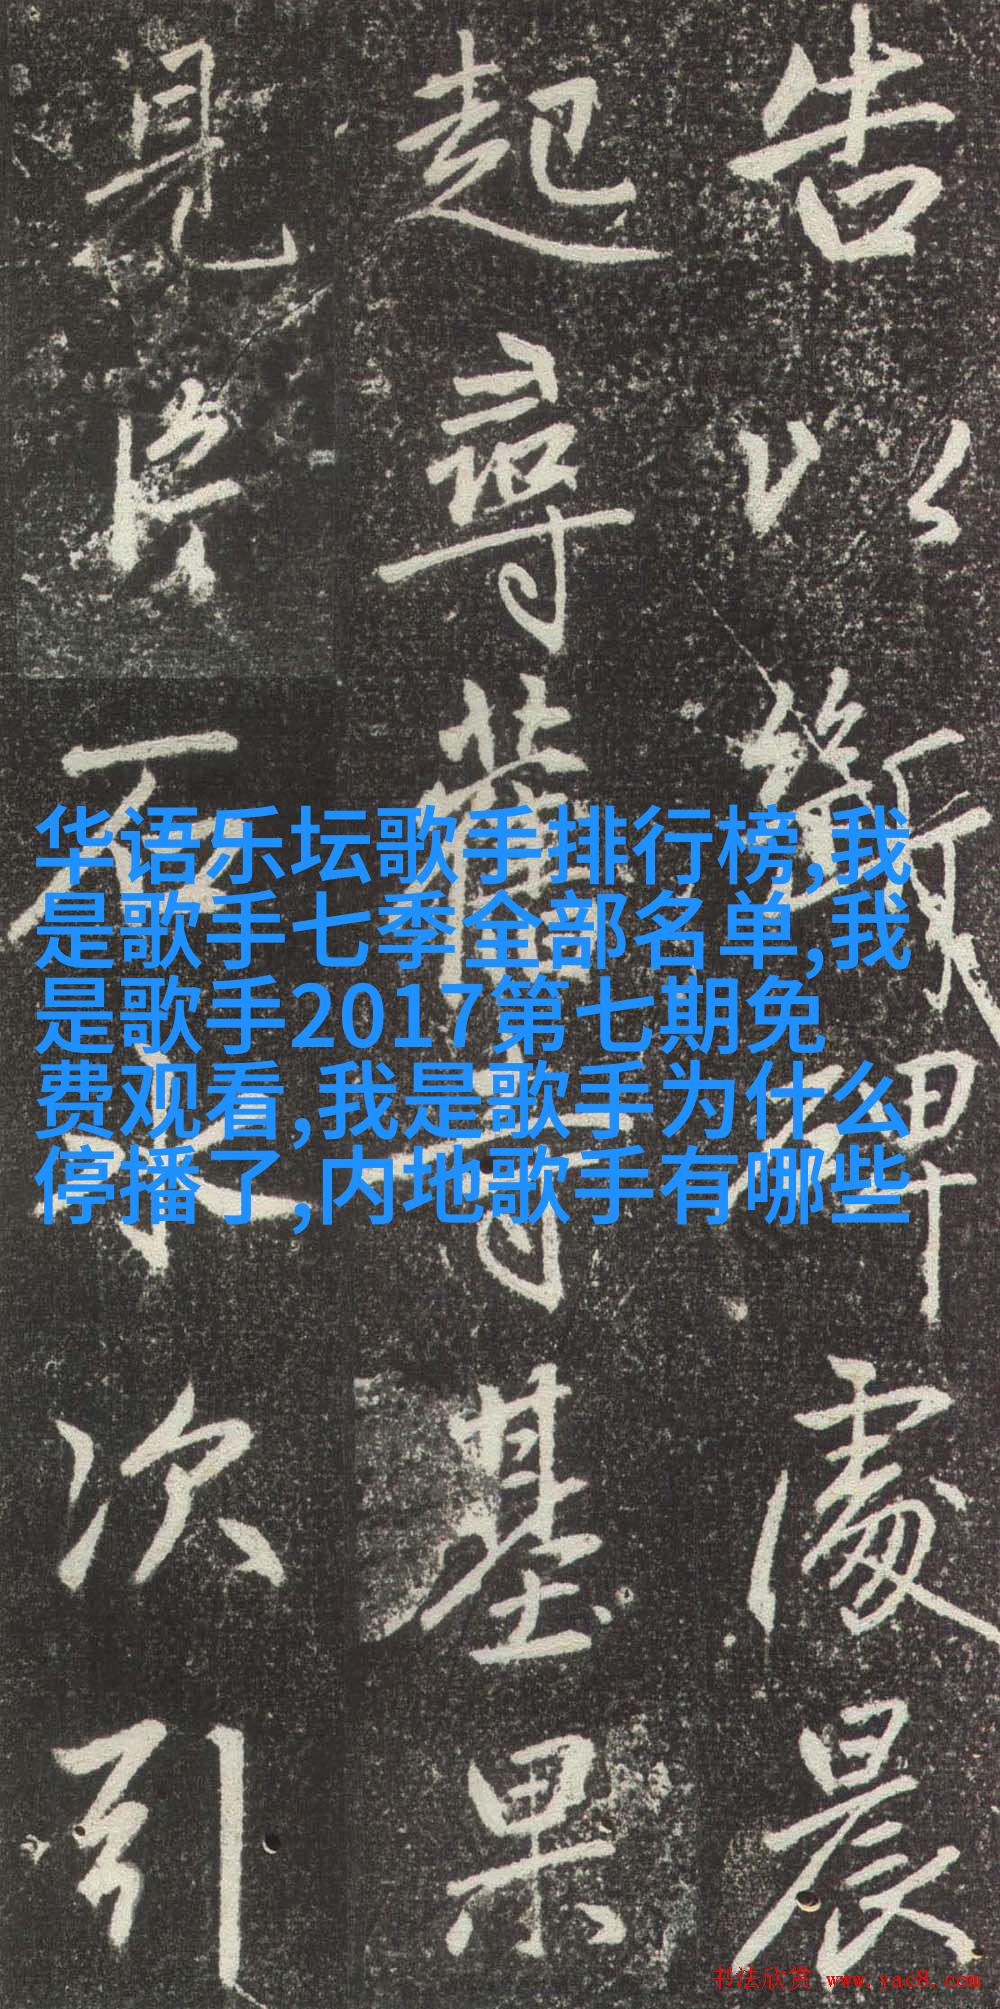 告以碑處晨
起尋舊寺基果
見片石次引
华语乐坛歌手排行榜,我
是歌手七季全部名单,我
是歌手2017第七期免
费观看,我是歌手为什么
停播了,内地歌手有哪些
书法欣赏 www.yac8.com